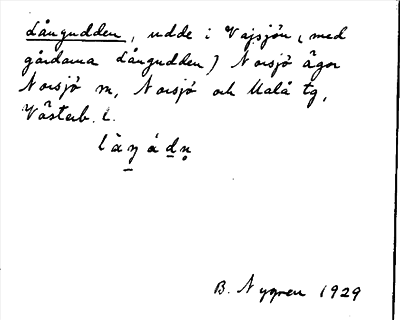 Långudden, udde i Vajsjön (med
gårdarna Långudden) Norsjö ägor
Norsjö sn, Norsjö och Malå tg,
Västerb. l.
B. Nygren 1929